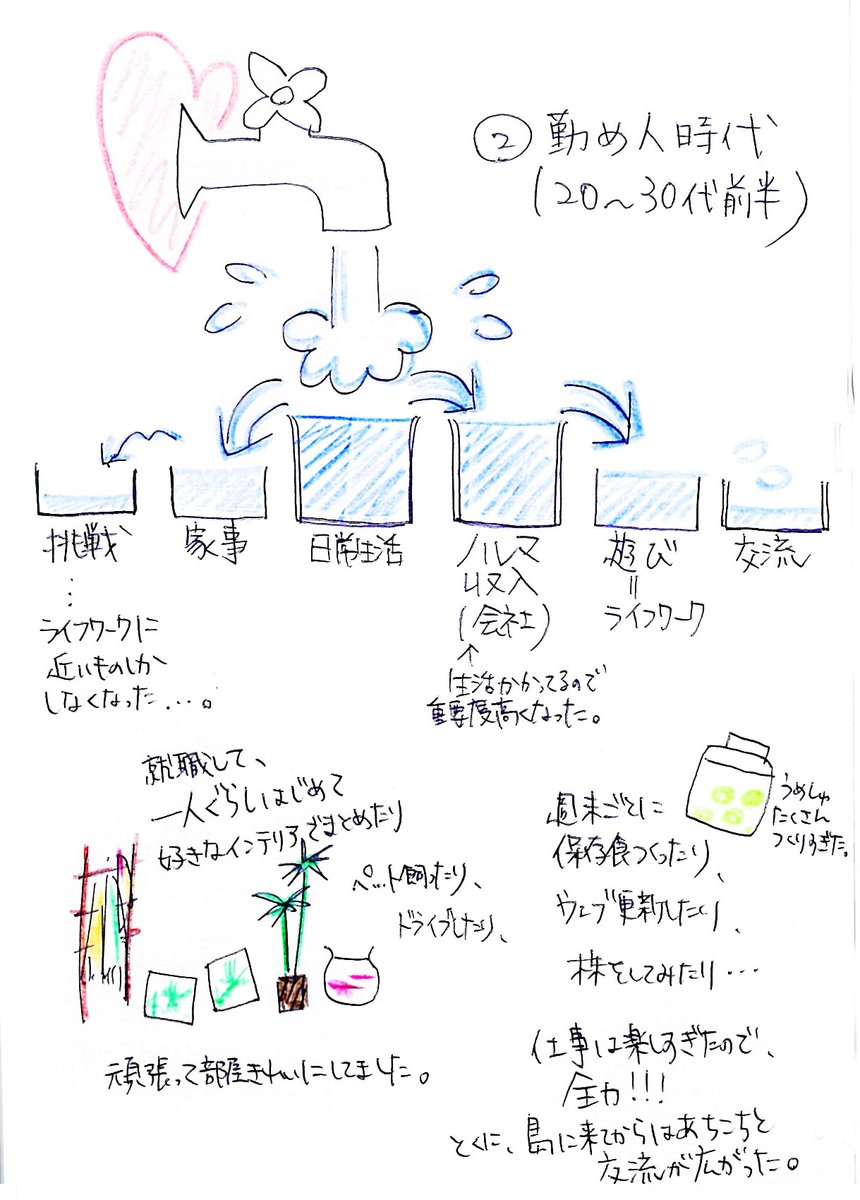 ② 勤め人時代
(20〜30代前半)
挑戦
家事
日常生活
ノルマ
収入
(会社)
遊び
=
ライフワーク
交流
⋮
ライフワークに
近いものしか
しなくなった…。
↑
生活かかってるので
重要度高くなった。
就職して、
一人ぐらしはじめて
好きなインテリアでまとめたり
ペット飼ったり、
ドライブしたり、
頑張って部屋きれいにしてました。
週末ごとに
保存食つくったり、
ウェブ更新したり、
株をしてみたり…
うめしゅ
たくさん
つくりすぎた。
仕事は楽しすぎたので、
全力!!!
とくに、島に来てからはあちこちと
交流が広がった。